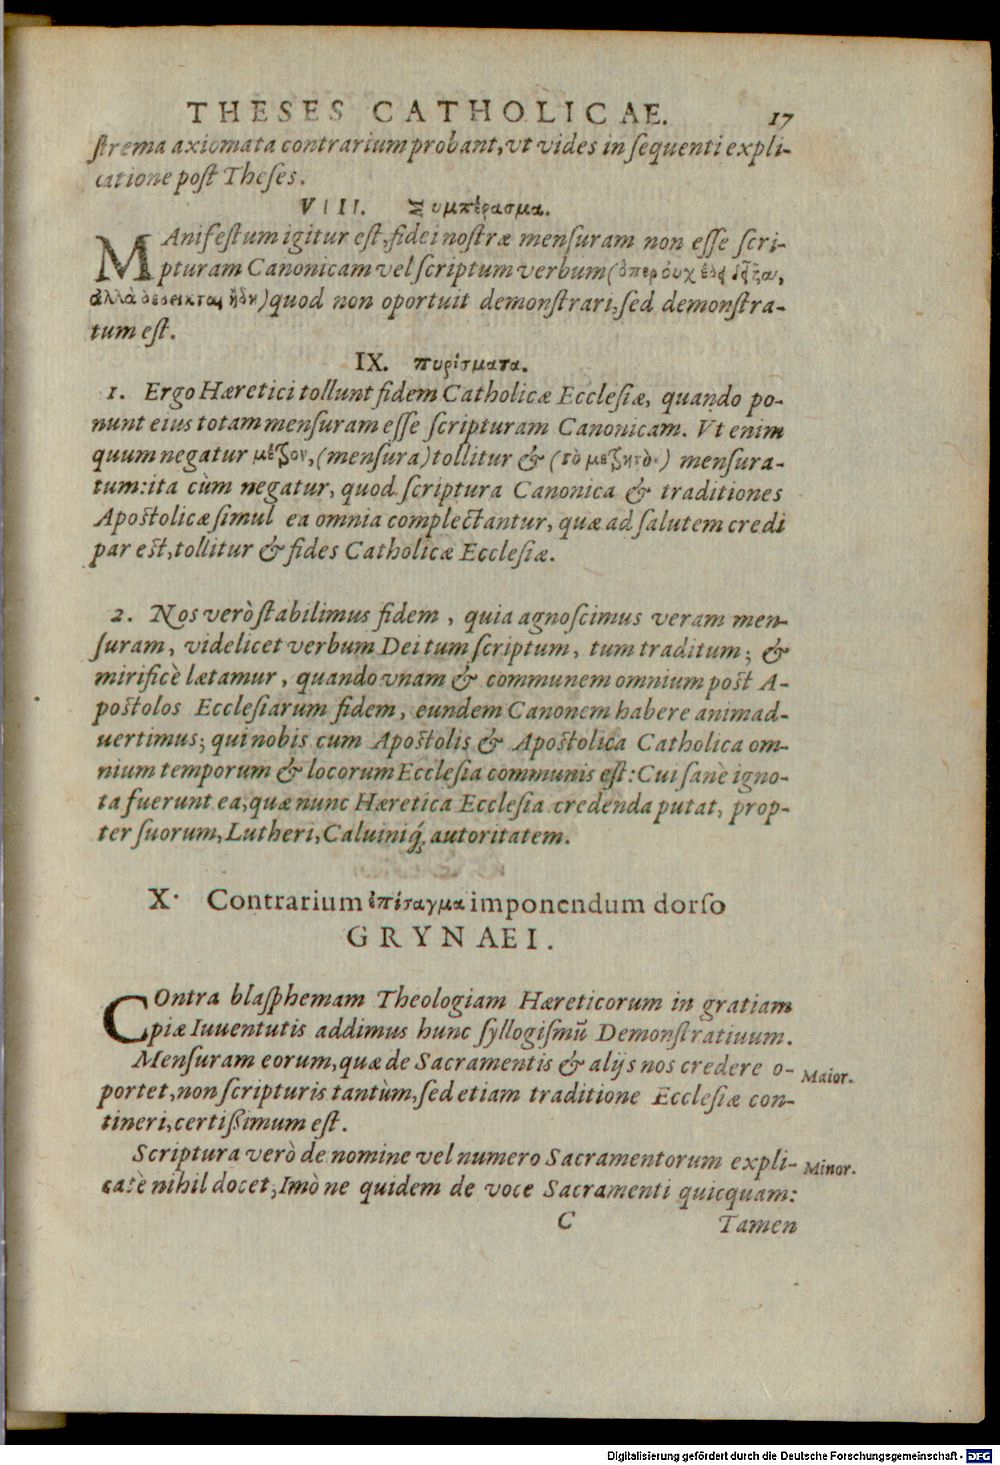 THESES CATHOLICAE. 17
ſtrema axiomata contrarium probant, vt vides in ſequenti expli-
catione poſt Theſes.
VIII. Συμπέρασμα.
MAnifeſtum igitur eſt, fidei noſtræ menſuram non eſſe ſcri-
pturam Canonicam vel ſcriptum verbum (ὅπερ οὐχ ἔδει δεῖξαι,
ἀλλὰ δέδεικται ἤδη) quod non oportuit demonſtrari, ſed demonſtra-
tum eſt.
IX. πορίσματα.
1. Ergo Hæretici tollunt fidem Catholicæ Eccleſiæ, quando po-
nunt eius totam menſuram eſſe ſcripturam Canonicam. Vt enim
quum negatur μέτρον, (menſura) tollitur & (τὸ μετρητὸν) menſura-
tum: ita cùm negatur, quod ſcriptura Canonica & traditiones
Apoſtolicæ ſimul ea omnia complectantur, quæ ad ſalutem credi
par eſt, tollitur & fides Catholicæ Eccleſiæ.
2. Nos verò ſtabilimus fidem, quia agnoſcimus veram men-
ſuram, videlicet verbum Dei tum ſcriptum, tum traditum; &
mirificè lætamur, quando vnam & communem omnium poſt A-
poſtolos Eccleſiarum fidem, eundem Canonem habere animad-
uertimus; qui nobis cum Apoſtolis & Apoſtolica Catholica om-
nium temporum & locorum Eccleſia communis eſt: Cui ſanè igno-
ta fuerunt ea, quæ nunc Hæretica Eccleſia credenda putat, prop-
ter ſuorum, Lutheri, Caluiniq́; autoritatem.
X. Contrarium ἐπίταγμα imponendum dorſo
GRYNAEI.
COntra blaſphemam Theologiam Hæreticorum in gratiam
piæ Iuuentutis addimus hunc ſyllogiſmũ Demonſtratiuum.
Menſuram eorum, quæ de Sacramentis & alijs nos credere o- Maior.
portet, non ſcripturis tantùm, ſed etiam traditione Eccleſiæ con-
tineri, certiſſimum eſt.
Scriptura verò de nomine vel numero Sacramentorum expli- Minor.
catè nihil docet, Imò ne quidem de voce Sacramenti quicquam:
C Tamen
Digitalisierung gefördert durch die Deutsche Forschungsgemeinschaft - DFG